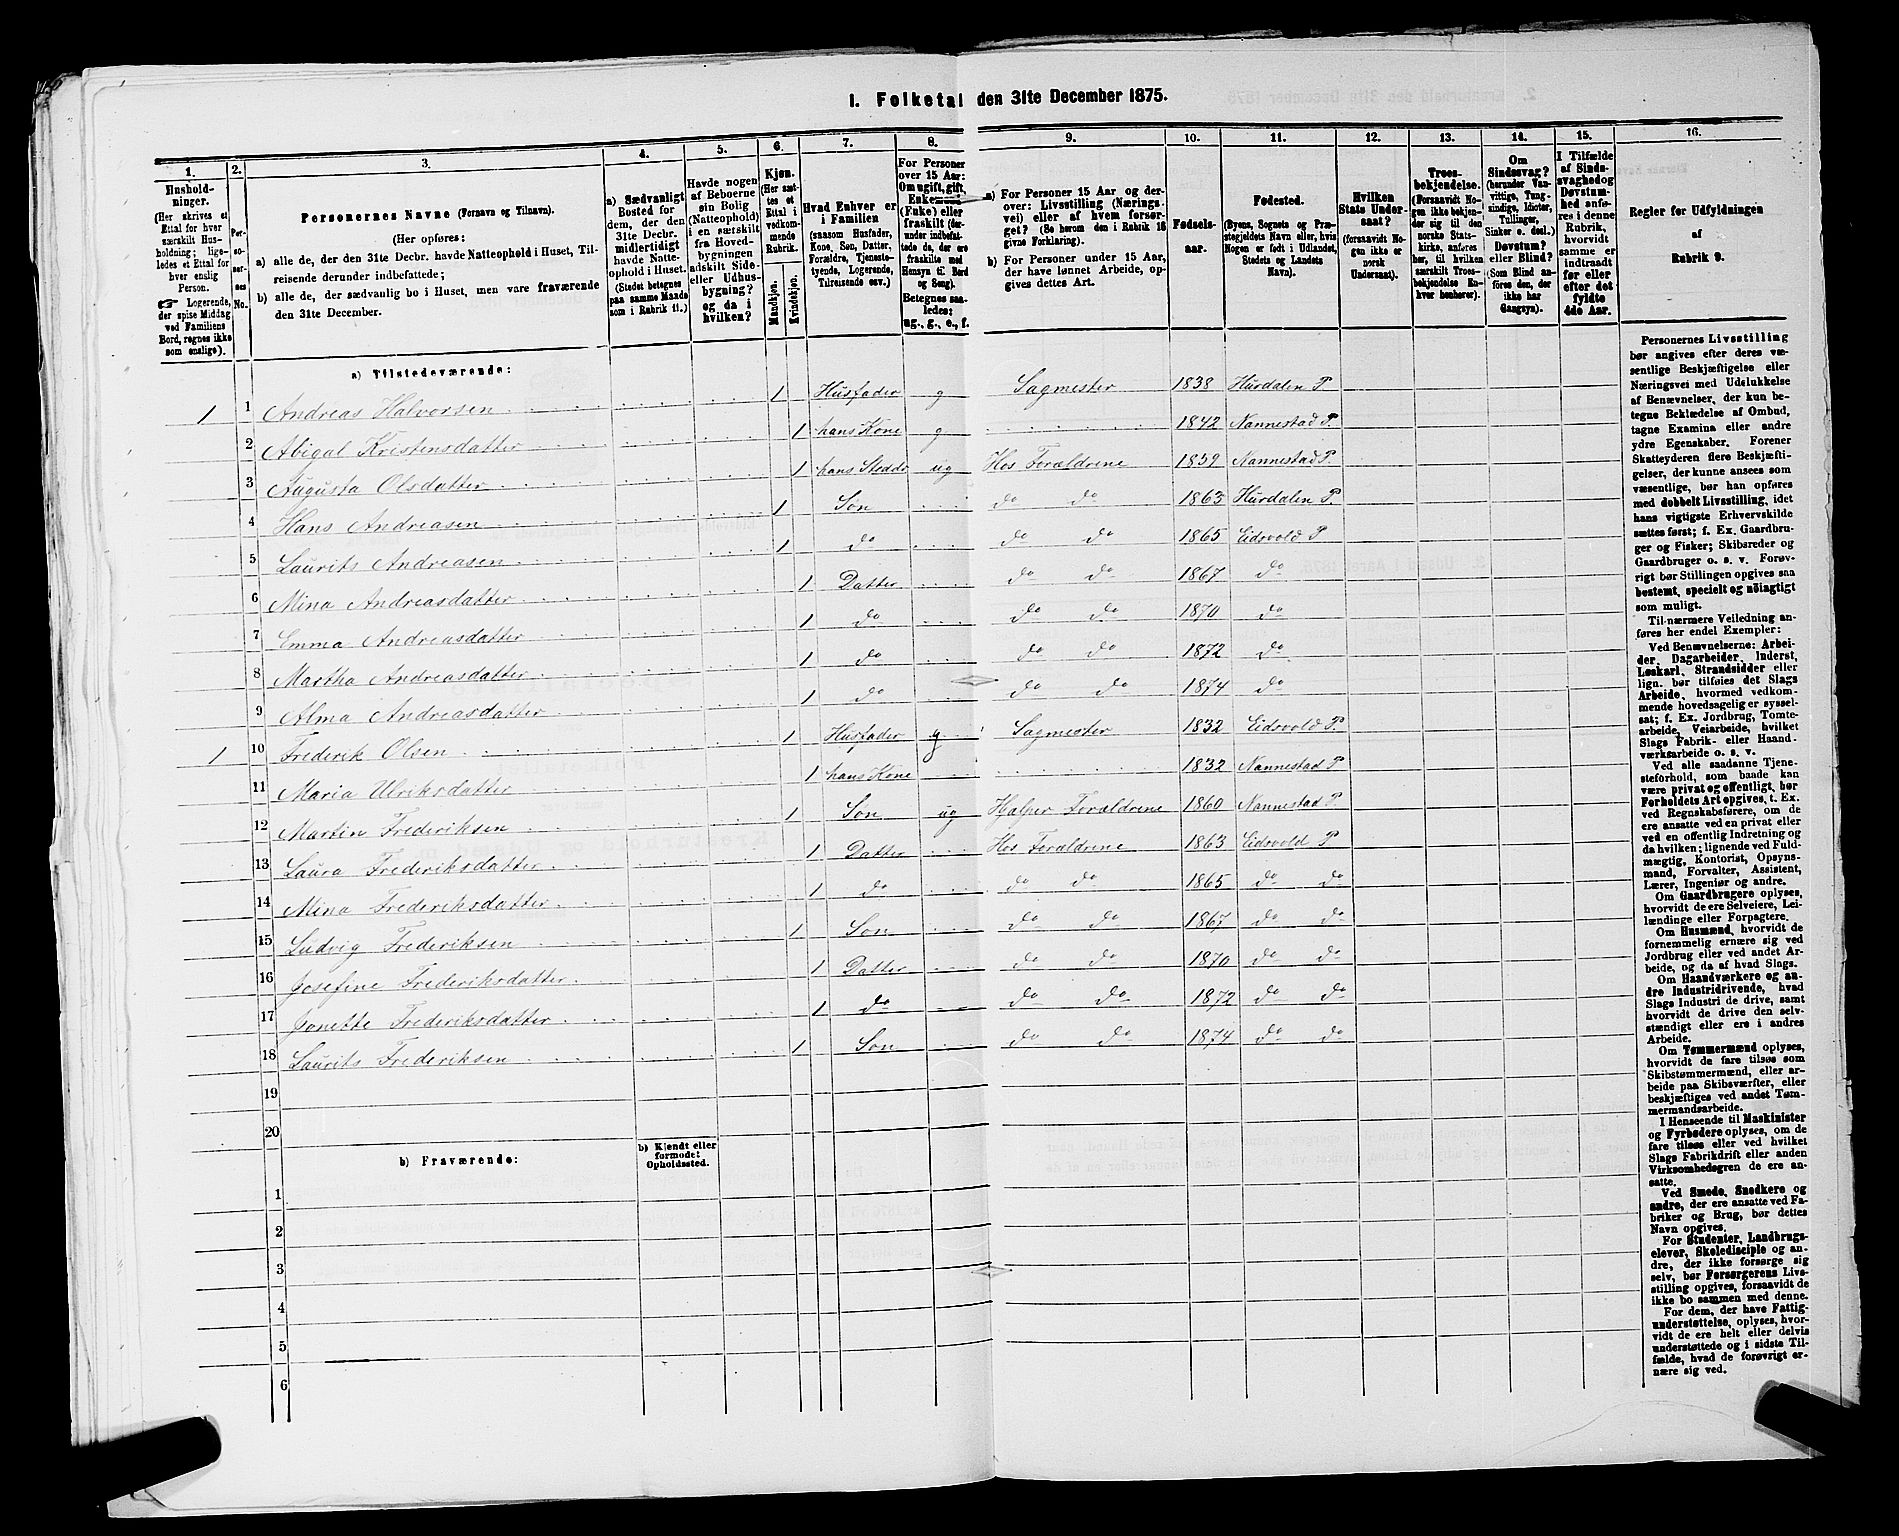 1. Folketal den 31te December 1875.
1. 2. 3. 4. 5. 6. 7. 8. 9. 10. 11. 12. 13. 14. 15. 16.
Husholdninger.
(Her skrives et
Ettal for hver
særskilt Husholdning;
ligeledes et Ettal for
hver enslig
Person.
☞ Logerende,
der spise Middag
ved Familiens
Bord, regnes ikke
som enslige).
Personernes No.
Personernes Navne (Fornavn og Tilnavn).
(Her opføres:
a) alle de, der den 31te Decbr. havde Natteophold i Huset, Tilreisende derunder indbefattede;
b) alle de, der sædvanlig bo i Huset, men vare fraværende
den 31te December.
a) Sædvanligt
Bosted for
dem, der den
31te Decbr.
midlertidigt
havde Natteophold i Huset.
(Stedet betegnes
paa samme Maade
som i Rubrik 11.)
Havde nogen
af Beboerne
sin Bolig
(Natteophold)
i en særskilt
fra Hovedbygningen
adskilt Side-
eller Udhusbygning?
og da i
hvilken?
Kjøn.
(Her sættes et
Ettal i
vedkommende
Rubrik.)
Mandkjøn.
Kvindekjøn.
Hvad Enhver er
i Familien
(saasom Husfader,
Kone, Søn, Datter,
Forældre, Tjenestetyende, Logerende,
Tilreisende osv.)
For Personer
over 15 Aar:
Om ugift, gift,
Enkemand
(Enke) eller
fraskilt (derunder indbefattede de, der ere
fraskilte med
Hensyn til Bord
og Seng).
Betegnes saaledes:
ug., g., e., f.
a) For Personer 15 Aar og derover: Livsstilling (Næringsvei) eller af hvem forsørget? (Se herom den i Rubrik 16
givne Forklaring).
b) For Personer under 15 Aar,
der have lønnet Arbeide, opgives dettes Art.
Fødselsaar.
Fødested.
(Byens, Sognets og Præstegjeldets Navn eller, hvis
Nogen er født i Udlandet,
Stedets og Landets
Navn).
Hvilken
Stats Undersaat?
(forsaavidt Nogen ikke er
norsk
Undersaat).
Troesbekjendelse.
(Forsaavidt Nogen ikke bekjender sig til den
norske Statskirke, anføres
her, til hvilken
særskilt Troesbekjendelse Enhver henhører).
Om
Sindssvag?
(herunder Vanvittige, Tungsindige, Idioter,
Tullinger,
Sinker o. desl.)
Døvstum?
eller Blind?
(Som Blind anføres den, der
ikke har
Gangsyn).
I Tilfælde
af Sindssvaghed og
Døvstumhed anføres i denne
Rubrik,
hvorvidt
samme er
indtraadt
før eller
efter det
fyldte
4de Aar.
Regler for Udfyldningen
af
Rubrik 9.
a) Tilstedeværende:
1 1 Andreas Halvorsen 1 Husfader g Sagmester 1838 Hurdalen P
2 Abigal Kristensdatter 1 hans Kone g 1842 Nannestad P.
3 Augusta Olsdatter 1 hans Stedd. ug Hos Forældrene 1859 Nannestad P.
4 Hans Andreasen 1 Søn do do 1863 Hurdalen P.
5 Laurits Andreasen 1 do do do 1865 Eidsvold P
6 Mina Andreasdatter 1 Datter do do 1867 do
7 Emma Andreasdatter 1 do do do 1870 do
8 Martha Andreasdatter 1 do do do 1872 do
9 Alma Andreasdatter 1 do do do 1874 do
1 10 Frederik Olsen 1 Husfader g Sagmester 1832 Eidsvold P.
11 Maria Ulriksdatter 1 hans Kone 1832 Nannestad P
12 Martin Frederiksen 1 Søn ug Hjælper Forældrene 1860 Nannestad P.
13 Laura Frederiksdatter 1 Datter Hos Forældrene 1863 Eidsvold P
14 Mina Frederiksdatter 1 do do do 1865 do do
15 Ludvig Frederiksen 1 Søn do do 1867 do do
16 Josefine Frederiksdatter 1 Datter do do 1870 do do
17 Jonette Frederiksdatter 1 do do do 1872 do do
18 Laurits Frederiksen 1 Søn do do 1874 do do
19
20
b) Fraværende:
b) Kjendt eller
formodet
Opholdssted.
1
2
3
4
5
6
Personernes Livsstilling
bør angives efter deres væsentlige Beskjæftigelse eller
Næringsvei med Udelukkelse
af Benævnelser, der kun betegne Beklædelse af Ombud,
tagne Examina eller andre
ydre Egenskaber. Forener
Skatteyderen flere Beskjæftigelser, der kunne ansees som
væsentlige, bør han opføres
med dobbelt Livsstilling, idet
hans vigtigste Erhvervskilde
sættes først; f. Ex. Gaardbruger og Fisker; Skibsreder og
Gaardbruger o. s. v. Forøvrigt bør Stillingen opgives saa
bestemt, specielt og nøiagtigt
som muligt.
Til nærmere Veiledning anføres her endel Exempler:
Ved Benævnelserne: Arbeider, Dagarbeider, Inderst,
Løskarl, Strandsidder eller
lign. bør tilføies det Slags
Arbeide, hvormed vedkommende hovedsagelig er sysselsat; f. Ex. Jordbrug, Tomtearbeide, Veiarbeide, hvilket
Slags Fabrik- eller Haandværksarbeide o. s. v.
Ved alle saadanne Tjenesteforhold, som baade kan
være privat og offentligt, bør
Forholdets Art opgives, t. Ex.
ved Regnskabsførere, om de
ere ansatte ved en privat eller
ved en offentlig Indretning og
da hvilken; lignende ved Fuldmægtig, Kontorist, Opsynsmand, Forvalter, Assistent,
Lærer, Ingeniør og andre.
Om Gaardbrugere oplyses,
hvorvidt de ere Selveiere, Leilændinge eller Forpagtere.
Om Husmænd, hvorvidt de
fornemmelig ernære sig ved
Jordbrug eller ved andet Arbeide, og da af hvad Slags.
Om Haandværkere og andre Industridrivende, hvad
Slags Industri de drive, samt
hvorvidt de drive den selvstændigt eller ere i andres
Arbeide.
Om Tømmermænd oplyses,
hvorvidt de fare tilsøs som
Skibstømmermænd, eller arbeide paa Skibsværfter, eller
beskjæftiges ved andet Tømmermandsarbeide.
I Henseende til Maskinister
og Fyrbødere oplyses, om de
fare tilsøs eller ved hvilket
Slags Fabrikdrift eller anden
Virksomhedsgren de ere ansatte.
Ved Smede, Snedkere og
andre, der ere ansatte ved Fabriker og Brug, bør dettes
Navn opgives.
For Studenter, Landbrugselever, Skoledisciple og andre, der ikke forsørge sig
selv, bør Forsørgerens Livsstilling opgives, forsaavidt de
ikke bo sammen med denne.
For dem, der have Fattigunderstøttelse, oplyses, hvorvidt de ere helt eller delvis
understøttede og i sidste Tilfælde, hvad de forøvrigt ernære sig ved.